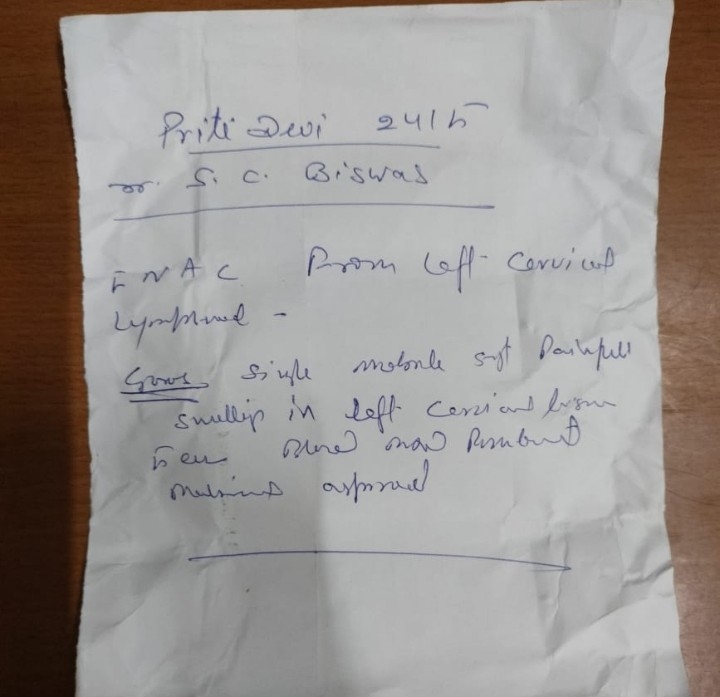 Priti Devi 24/F
Dr. S. C. Biswas
FNAC From Left Cervical
Lymphnod -
Gross Single mobile soft Painful
swelling in left Cervical
Blood mixed
material aspirated